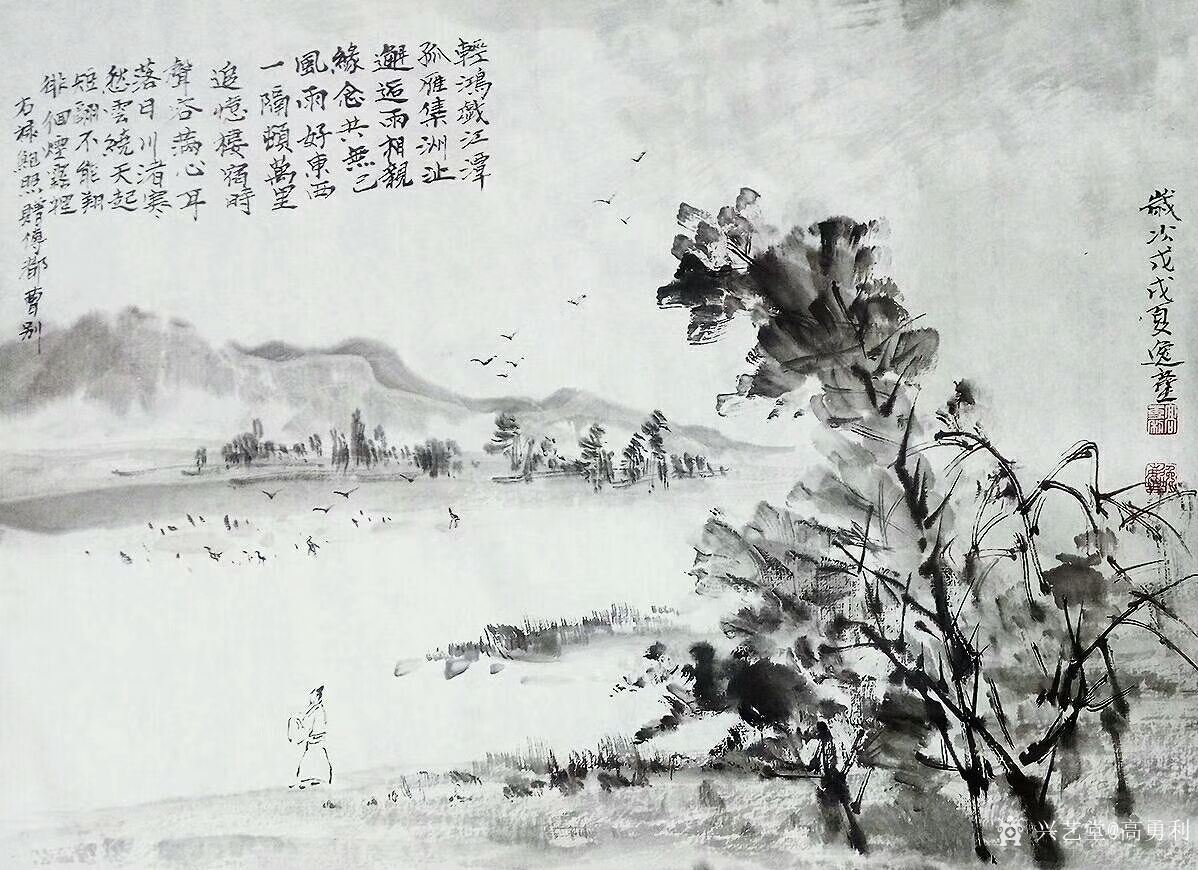 輕鴻戲江潭
孤雁集洲沚
邂逅兩相親
緣念共無已
風雨好東西
一隔頓萬里
追憶棲宿時
聲容滿心耳
落日川渚寒
愁雲繞天起
短翮不能翔
徘徊煙霧裡
鮑照贈傅都曹別
歲次戊戌夏逸塵
兴艺堂@高勇利